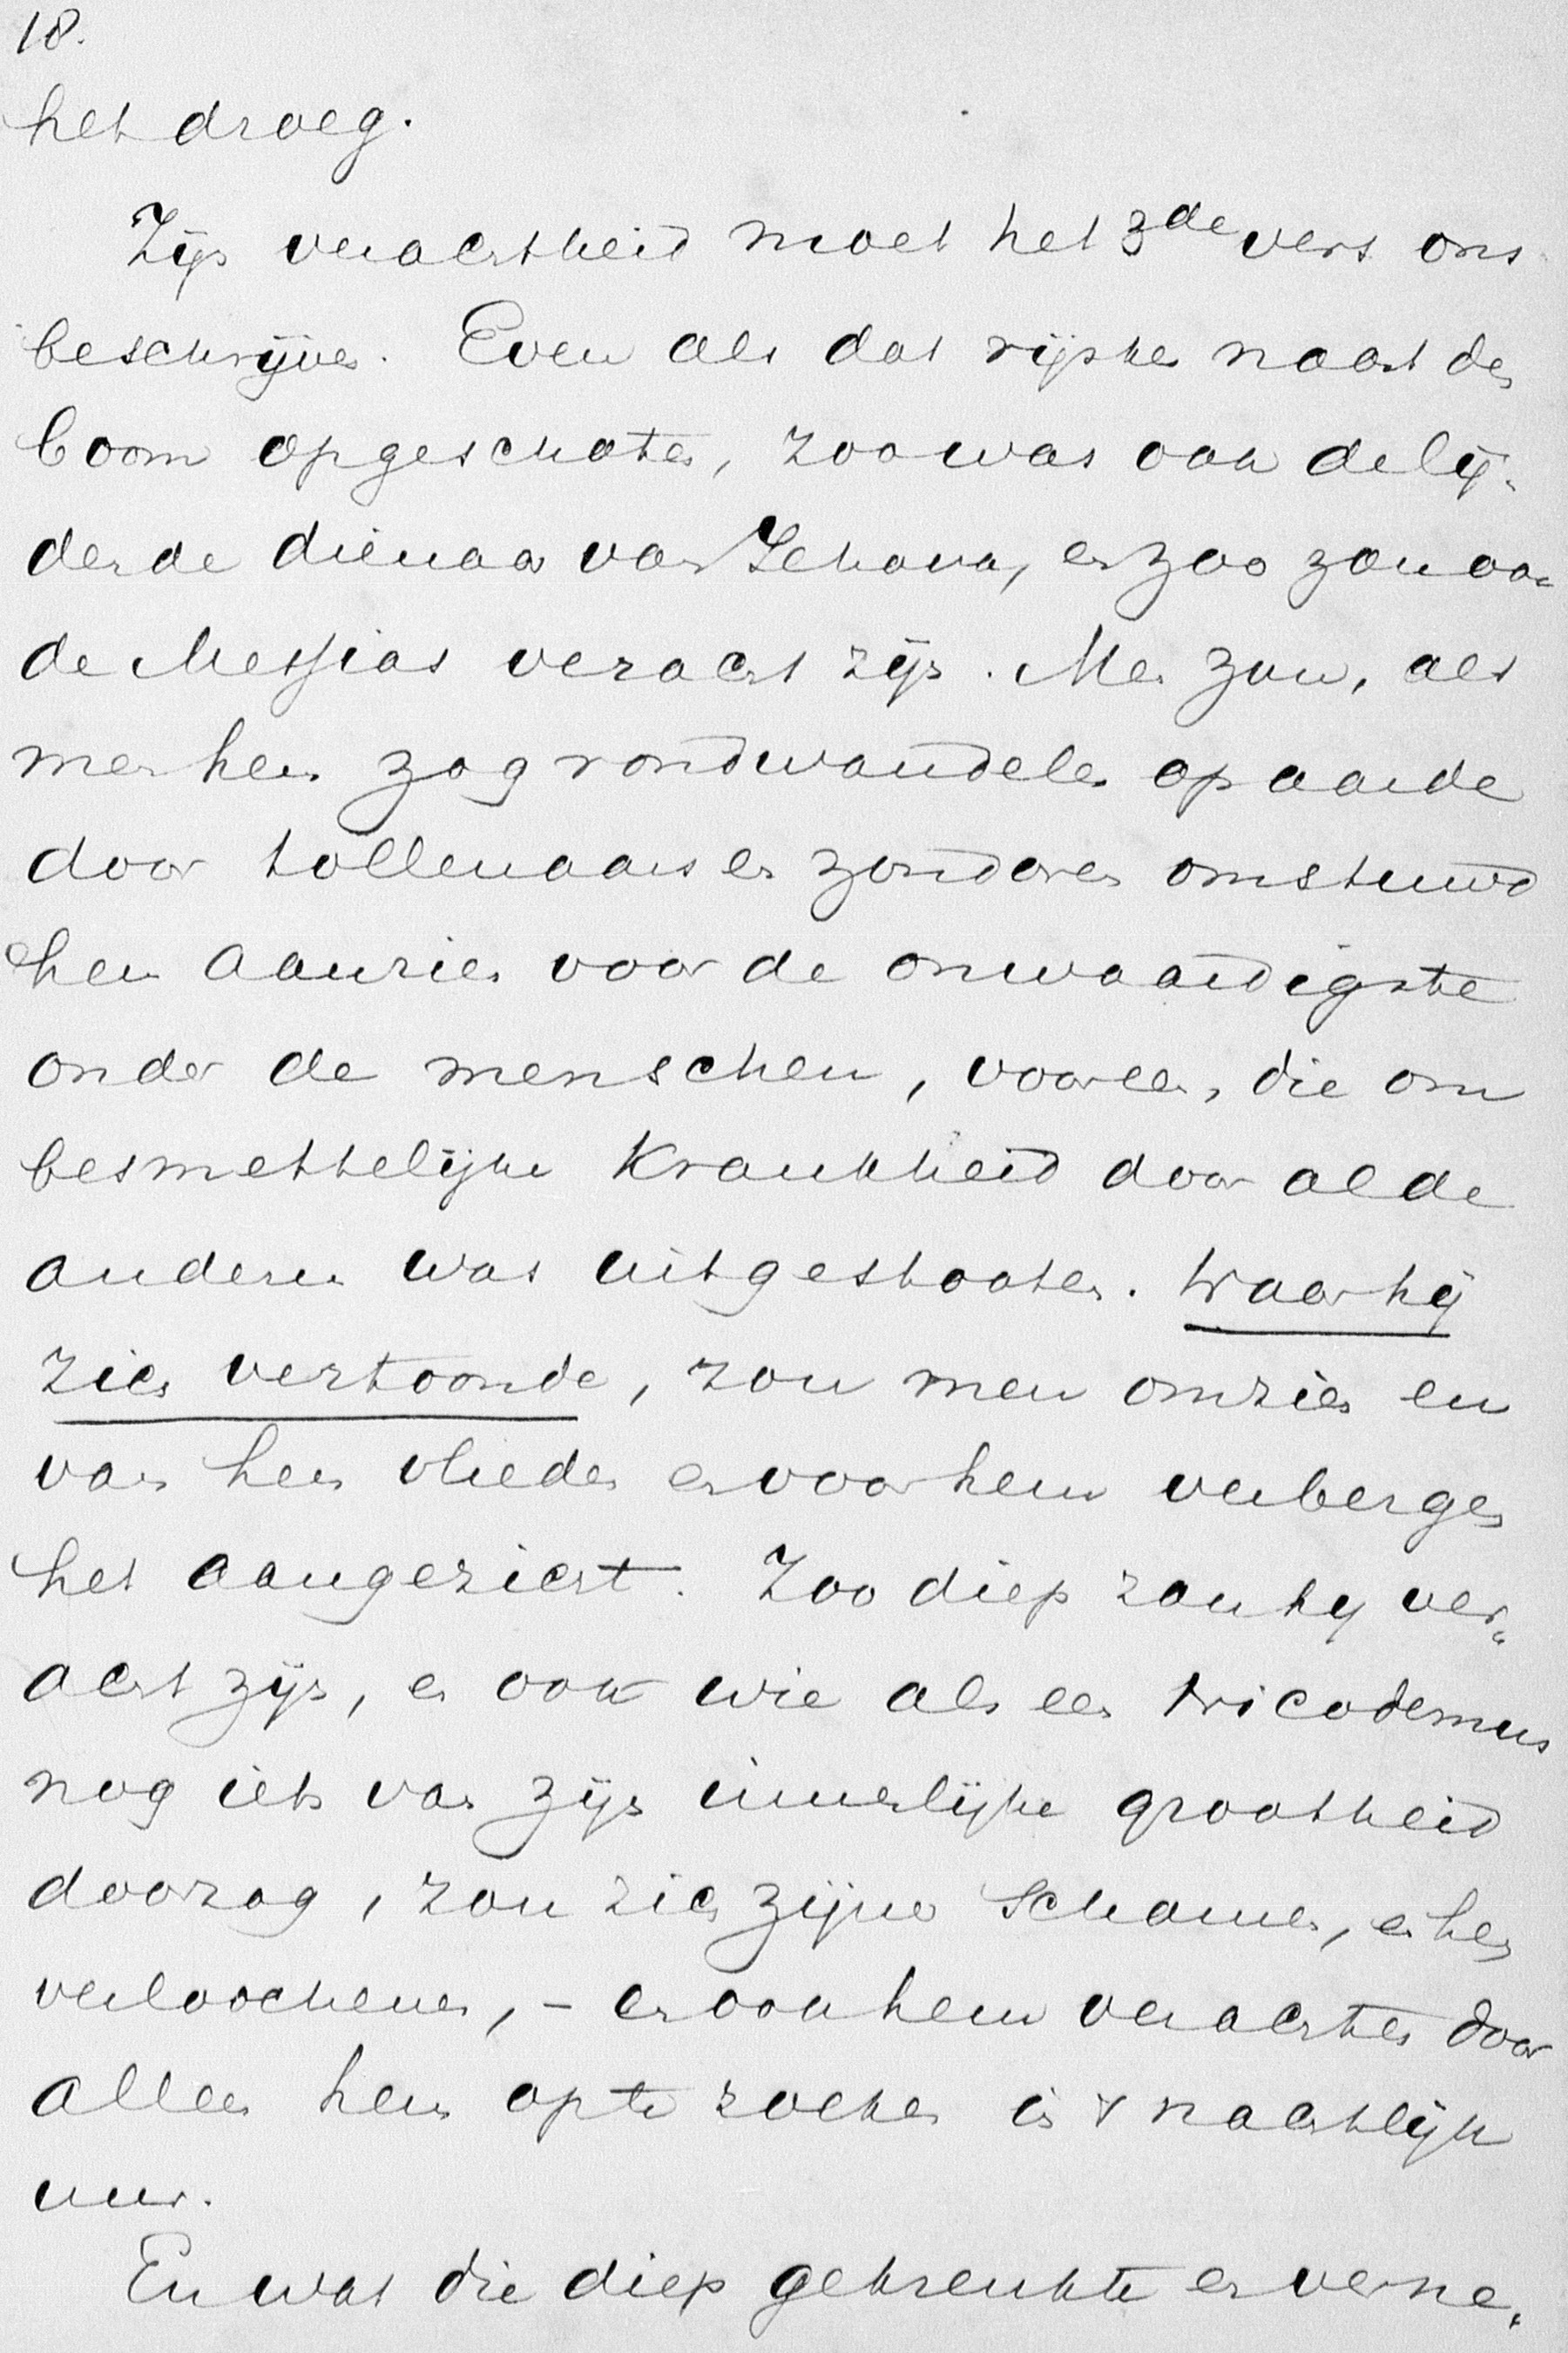 18.
het droeg.
Zijn verachtheid moet het 3de vers ons
beschrijven. Even als dat rijsken naast den
boom opgeschoten, zoo was ook de lij-
dende dienaar van Jehova, en zoo zou ook
de Messias veracht zijn. Men zou, als
men hem zag rondwandelen op aarde
door tollenaars en zondaren omstuwd
hem aanzien voor de onwaardigste
onder de menschen, voor een, die om
besmettelijke krankheid door al de
anderen was uitgestooten. Waar hij
zich vertoonde, zou men omzien en
van hem vlieden en voor hem verbergen
het aangezicht. Zoo diep zou hij ver-
acht zijn, en ook wie als een Nicodemus
nog iets van zijn innerlijke grootheid
doorzag, zou zich zijner schamen, en hem
verloochenen, – en ook hem verachten door
alleen hem op te zoeken in 't nachtlijk
uur.
En wat die diep gekrenkte en verne-